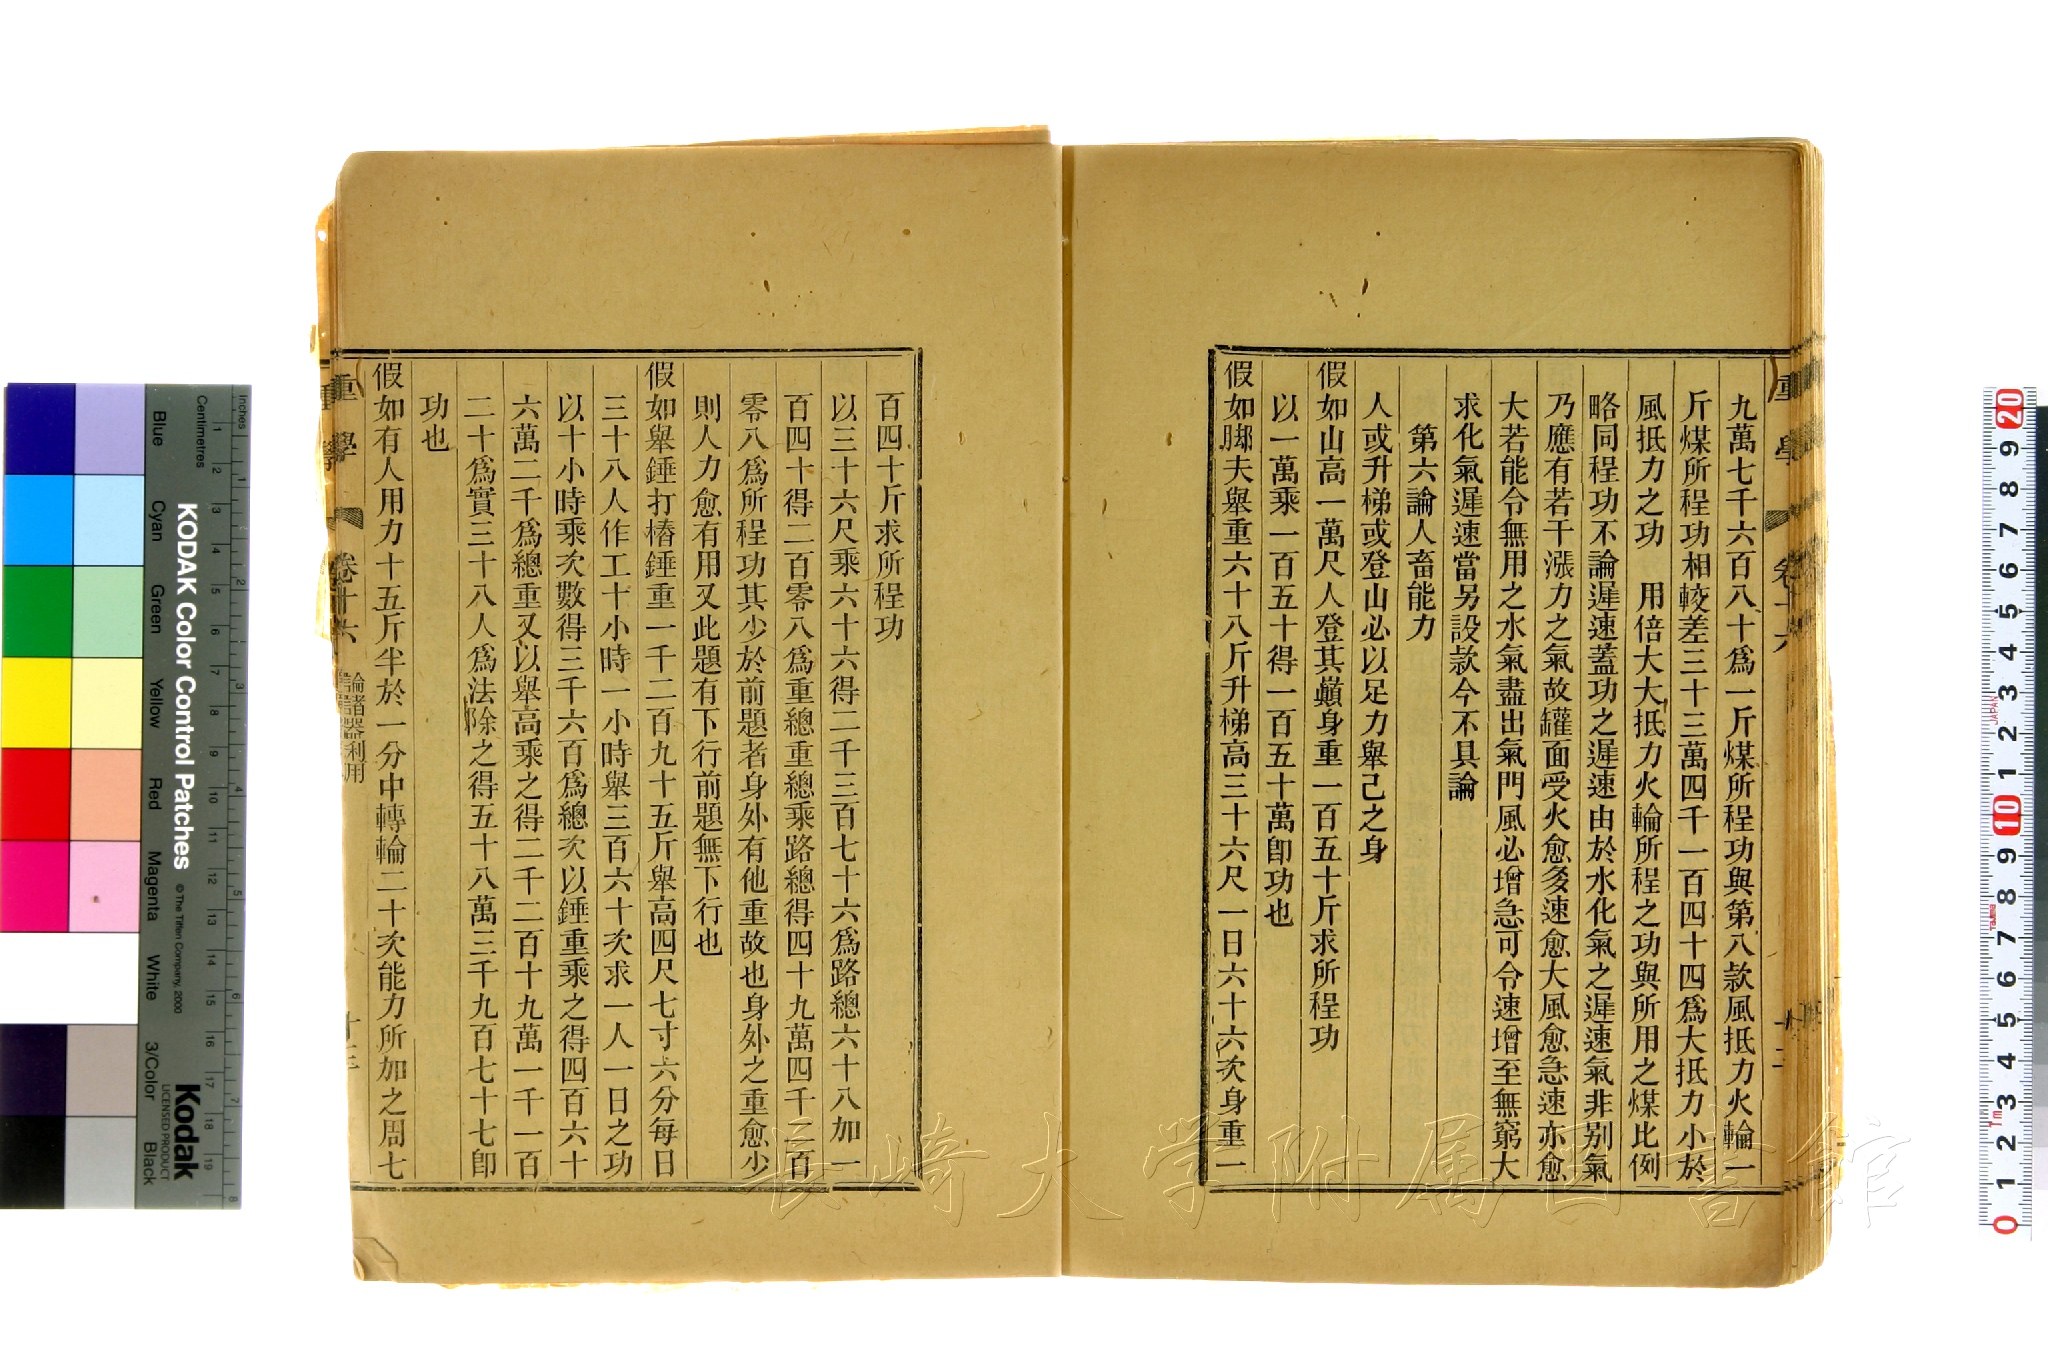 九萬七千六百八十爲一斤煤所程功與第八款風抵力火輪一
斤煤所程功相較差三十三萬四千一百四十四爲大抵力小於
風抵力之功　用倍大大抵力火輪所程之功與所用之煤比例
略同程功不論遲速蓋功之遲速由於水化氣之遲速氣非别氣
乃應有若干漲力之氣故罐面受火愈多速愈大風愈急速亦愈
大若能令無用之水氣盡出氣門風必增急可令速增至無窮大
求化氣遲速當另設款今不具論
第六論人畜能力
人或升梯或登山必以足力舉己之身
假如山高一萬尺人登其巔身重一百五十斤求所程功
以一萬乘一百五十得一百五十萬卽功也
假如脚夫舉重六十八斤升梯高三十六尺一日六十六次身重一
百四十斤求所程功
以三十六尺乘六十六得二千三百七十六爲路總六十八加一
百四十得二百零八爲重總重總乘路總得四十九萬四千二百
零八爲所程功其少於前題者身外有他重故也身外之重愈少
則人力愈有用又此題有下行前題無下行也
假如舉錘打樁錘重一千二百九十五斤舉高四尺七寸六分每日
三十八人作工十小時一小時舉三百六十次求一人一日之功
以十小時乘次數得三千六百爲總次以錘重乘之得四百六十
六萬二千爲總重又以舉高乘之得二千二百十九萬一千一百
二十爲實三十八人爲法除之得五十八萬三千九百七十七卽
功也
假如有人用力十五斤半於一分中轉輪二十次能力所加之周七
重學
卷十六
論諸器利用
十三
重學
卷十六
十二
長崎大学附属図書館
KODAK Color Control Patches
© The Tiffen Company, 2000
Kodak
LICENSED PRODUCT
Inches
Centimetres
Blue
Cyan
Green
Yellow
Red
Magenta
White
3/Color
Black